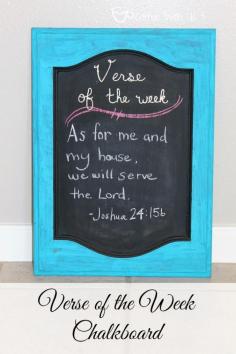 Verse
of the week
As for me and
my house,
we will serve
the Lord.
-Joshua 24:15b
Verse of the Week
Chalkboard